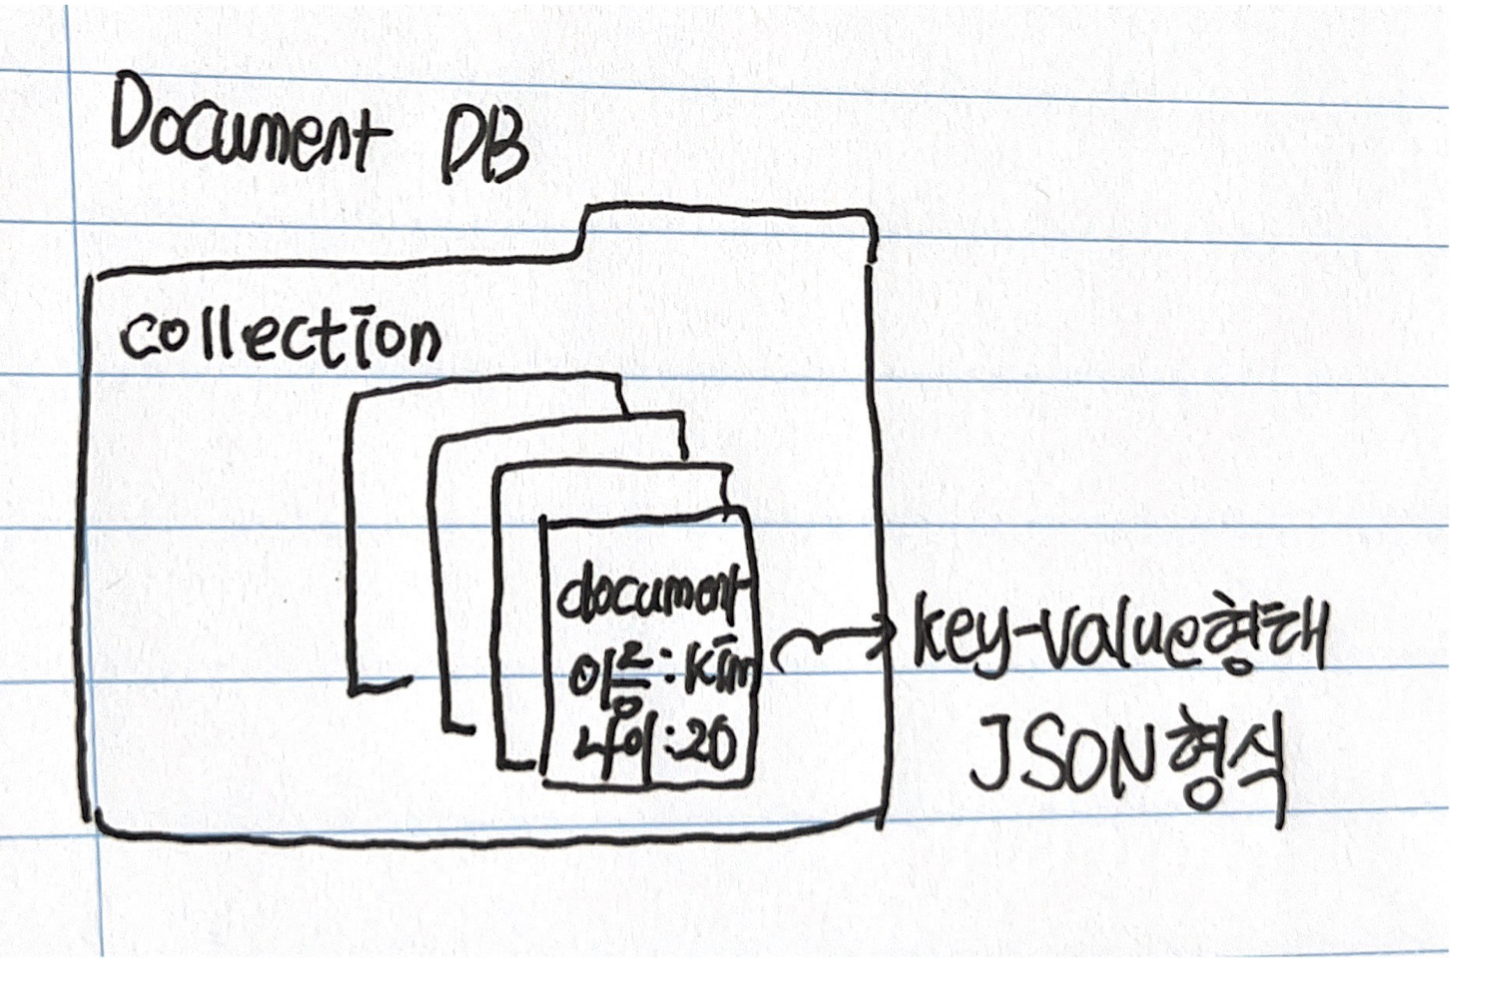 Document DB
collection
document
이름 : Kim
나이 : 20
key-value형태
JSON형식